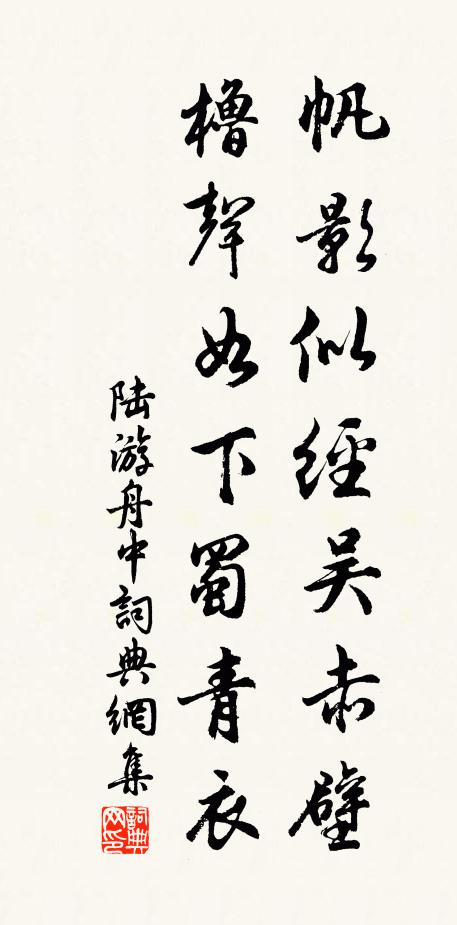 帆影似經吴赤壁
櫓聲如下蜀青衣
陆游舟中詞典網集
詞典网印